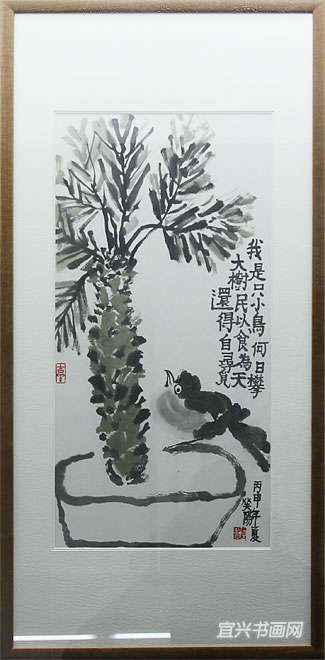 我是只小鳥何日攀
大樹民以食為天
還得自尋覓
丙申年夏
癸陽
宜兴书画网